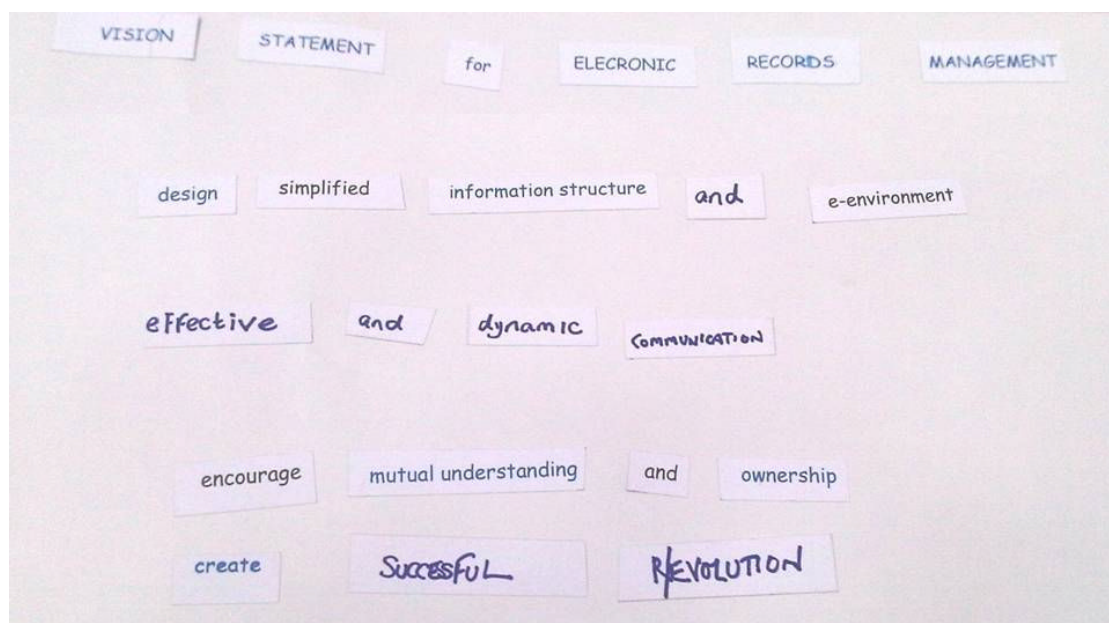 VISION STATEMENT for ELECRONIC RECORDS MANAGEMENT
design simplified information structure and e-environment
effective and dynamic COMMUNICATION
encourage mutual understanding and ownership
create SUCCESSFUL R/EVOLUTION